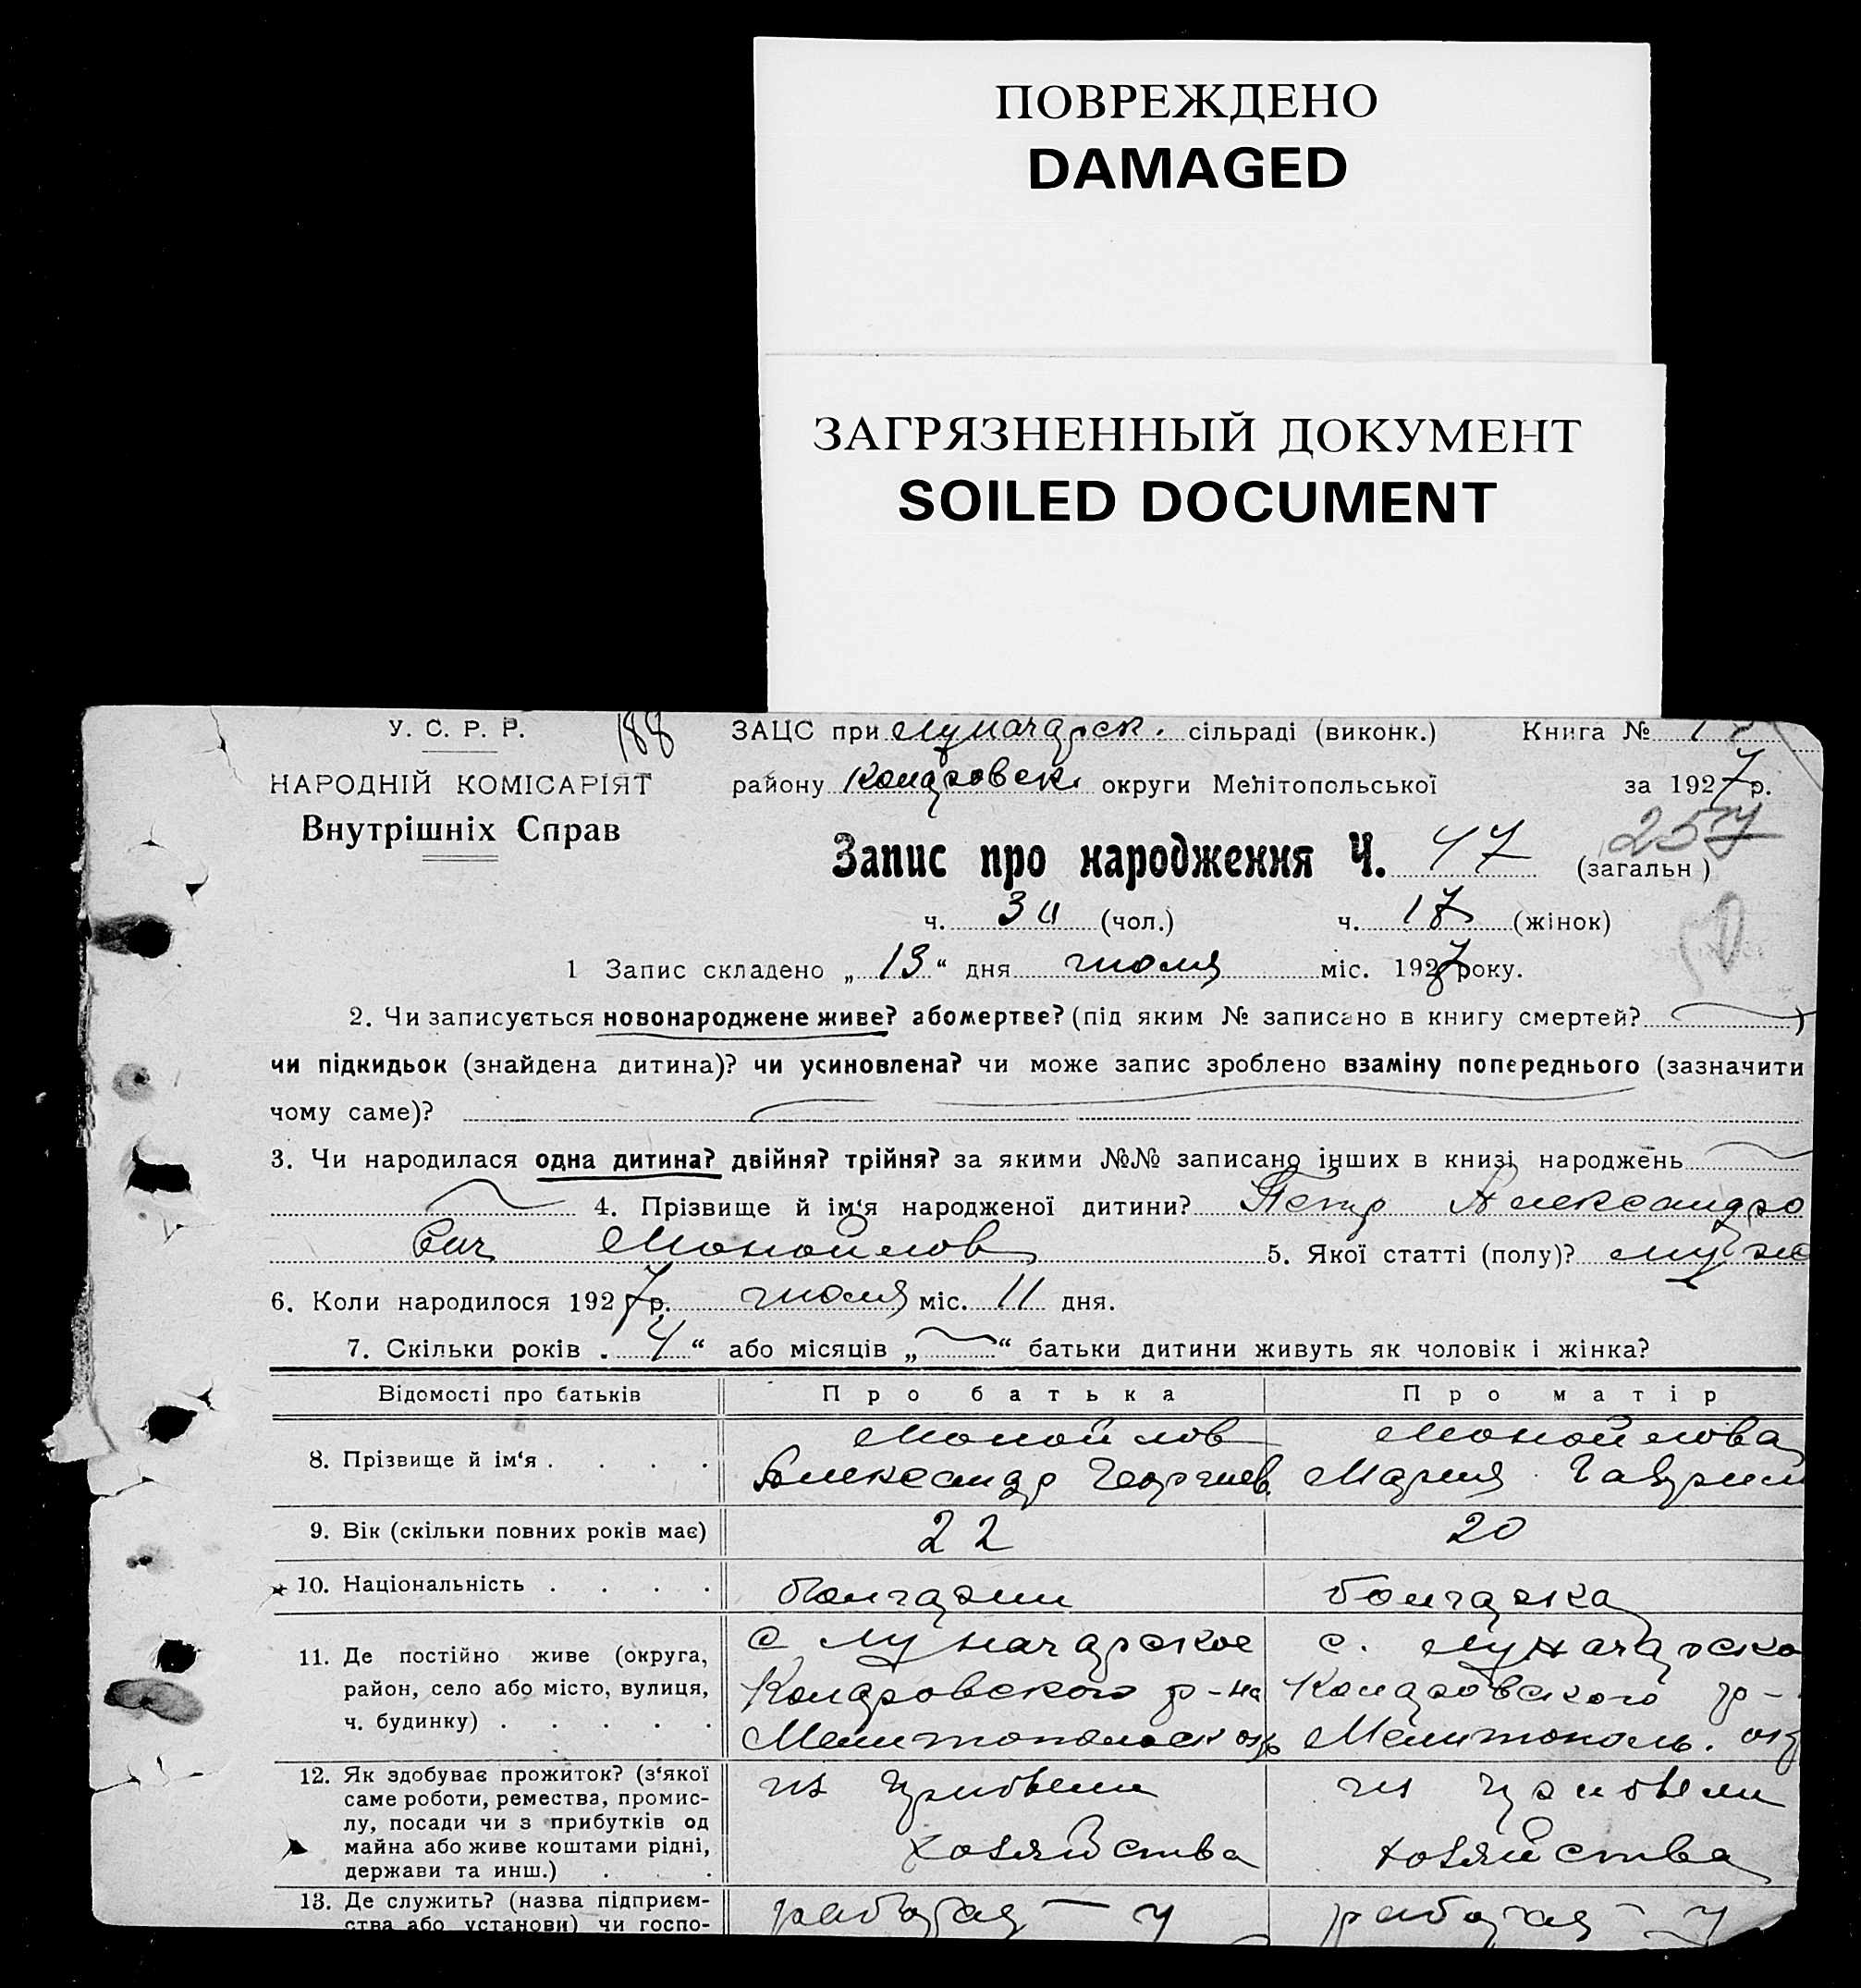 ПОВРЕЖДЕНО
DAMAGED
ЗАГРЯЗНЕННЫЙ ДОКУМЕНТ
SOILED DOCUMENT
У. С. Р. Р. 188 ЗАЦС при Луначарск. сільраді (виконк.) Книга № 1
НАРОДНІЙ КОМІСАРІЯТ району Коларовск округи Мелітопольської за 1927 р.
Внутрішніх Справ
Запис про народження Ч. 47 257 (загальн)
ч. 30 (чол.) ч. 17 (жінок)
1 Запис складено „13“ дня июля міс. 1927 року.
2. Чи записується новонароджене живе? або мертве? (під яким № записано в книгу смертей? )
чи підкидьок (знайдена дитина)? чи усиновлена? чи може запис зроблено взаміну попереднього (зазначити
чому саме)?
3. Чи народилася одна дитина? двійня? трійня? за якими №№ записано інших в книзі народжень
4. Прізвище й ім‘я народженої дитини? Петр Александро
вич Монойлов 5. Якої статті (полу)? муж
6. Коли народилося 1927 р. июля міс. 11 дня.
7. Скільки років „4“ або місяців „ “ батьки дитини живуть як чоловік і жінка?
Відомості про батьків Про батька Про матір
8. Прізвище й ім‘я . . . . Монойлов Монойлова
Александр Георгиев. Мария Гаврил
9. Вік (скільки повних років має) 22 20
10. Національність . . . . болгарин болгарка
11. Де постійно живе (округа, с Луначарское с. Луначарско
район, село або місто, вулиця, Коларовского р-на Коларовского р-
ч. будинку) . . . . . Мелитопольск окр Мелитополь. окр
12. Як здобуває прожиток? (з‘якої из прибыли из прибыли
саме роботи, ремества, промис-
лу, посади чи з прибутків од
майна або живе коштами рідні, хозяйства хозяйства
держави та инш.) . .
13. Де служить? (назва підприєм- работая - у работая - у
ства або установи) чи госпо-